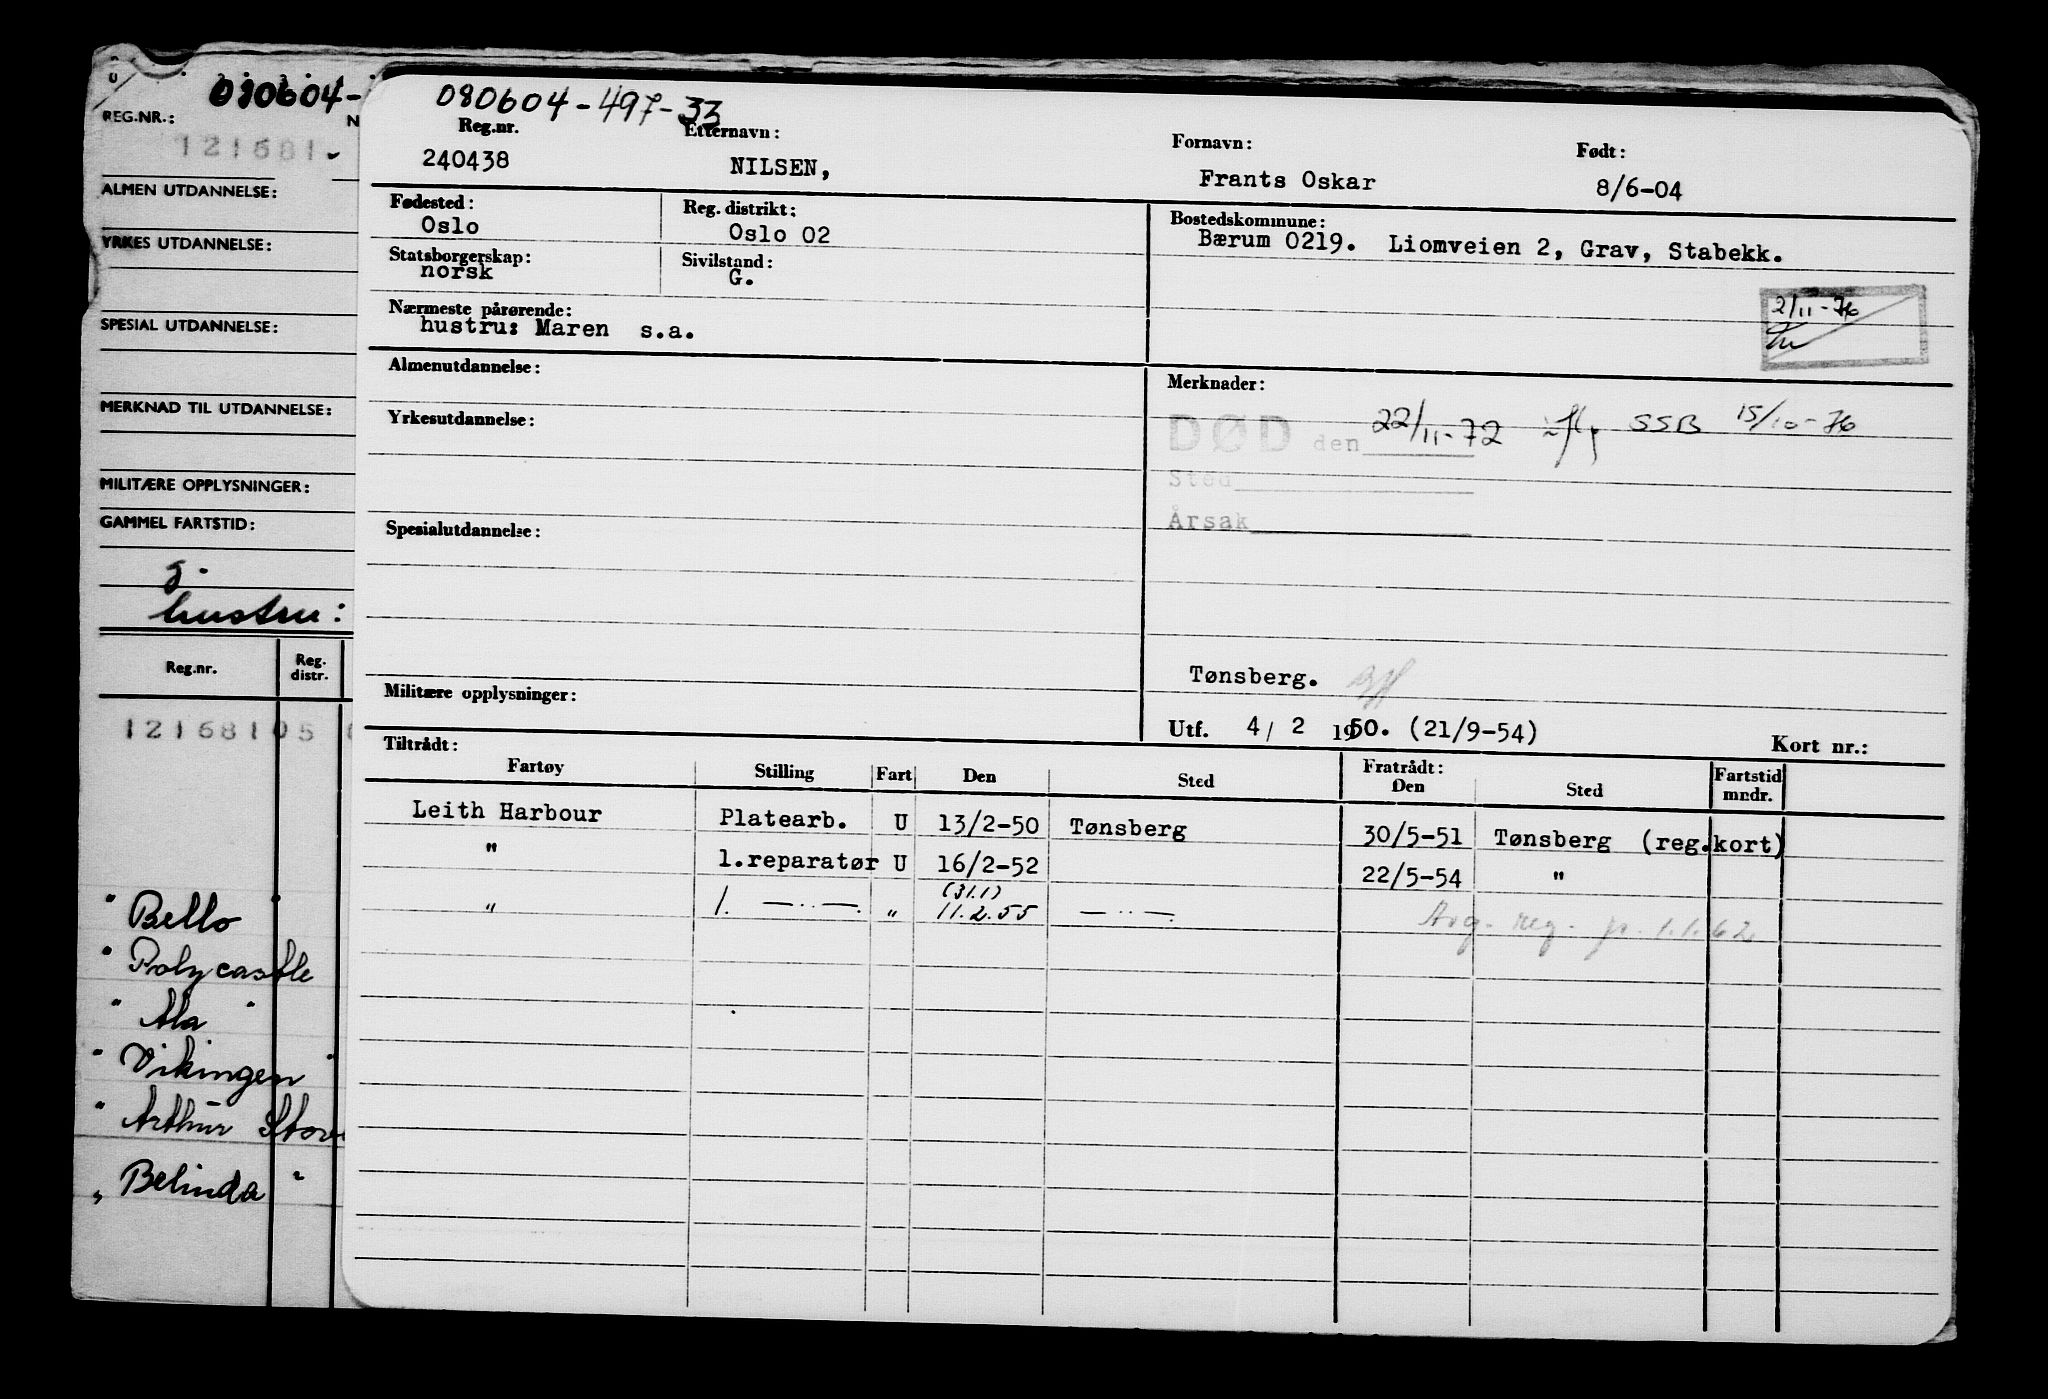 080604-
REG.NR.:
N
121681
ALMEN UTDANNELSE:
YRKES UTDANNELSE:
SPESIAL UTDANNELSE:
MERKNAD TIL UTDANNELSE:
MILITÆRE OPPLYSNINGER:
GAMMEL FARTSTID:
g.
hustru:
Reg.nr. Reg. distr.
12168105
" Bello "
" Polycastle
" Ala "
" Vikingen "
" Arthur Stove
" Belinda "
080604-497-33
Reg.nr. Etternavn: Fornavn: Født:
240438 NILSEN, Frants Oskar 8/6-04
Fødested: Reg. distrikt: Bostedskommune:
Oslo Oslo 02 Bærum 0219. Liomveien 2, Grav, Stabekk.
Statsborgerskap: Sivilstand:
norsk G.
2/11-76
Nærmeste pårørende:
hustru: Maren s.a.
Almenutdannelse: Merknader:
Yrkesutdannelse: DØD den 22/11-72 iflg SSB 15/10-76
Sted
Årsak
Spesialutdannelse:
Tønsberg.
Militære opplysninger:
Utf. 4/ 2 1950. (21/9-54) Kort nr.:
Tiltrådt: Fratrådt:
Fartøy Stilling Fart Den Sted Den Sted Fartstid mndr.
Leith Harbour Platearb. U 13/2-50 Tønsberg 30/5-51 Tønsberg (reg.kort)
" 1.reparatør U 16/2-52 22/5-54 "
(31.1)
" 1. —..—. " 11.2.55 —..—. Avg. reg. pr. 1.1.62